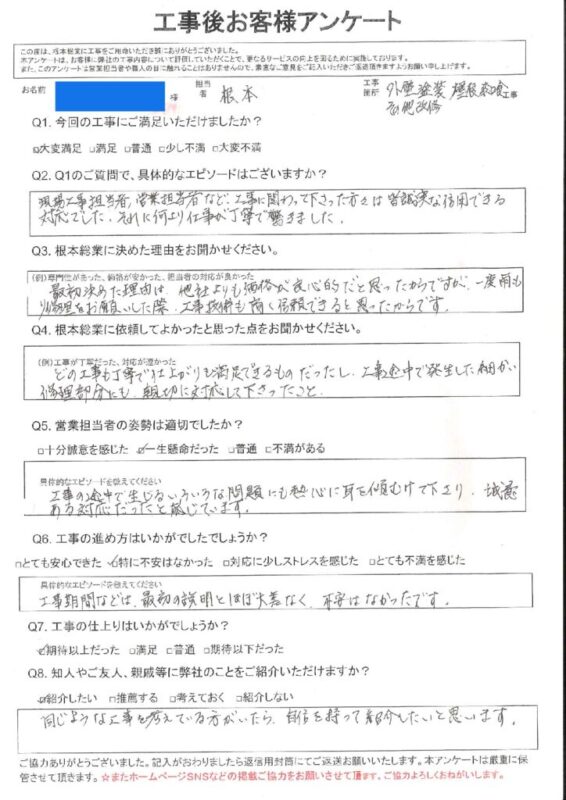 工事後お客様アンケート
この度は、根本総業に工事をご用命いただき誠にありがとうございました。
本アンケートは、お客様に弊社の工事内容について評価していただくことで、更なるサービスの向上を図るために実施しております。
また、このアンケートは営業担当者や個人の目に触れることはありませんので、率直なご意見をご記入いただきご返送頂きますようお願い申し上げます。
お名前 様 担当者 根本 工事箇所 外壁塗装 屋根 工事
その他改修
Q1. 今回の工事にご満足いただけましたか？
☑大変満足 □満足 □普通 □少し不満 □大変不満
Q2. Q1のご質問で、具体的なエピソードはございますか？
現場工事担当者、営業担当者など、工事に関わって下さった方々は皆誠実な信用できる
対応でした。それに何より仕事が丁寧で驚きました。
Q3. 根本総業に決めた理由をお聞かせください。
(例)専門性があった、価格が安かった、担当者の対応が良かった
最初決めた理由は、他社よりも価格が良心的だと思ったからですが、一度雨も
り修理をお願いした際、工事技術も高く信頼できると思ったからです。
Q4. 根本総業に依頼してよかったと思った点をお聞かせください。
(例)工事が丁寧だった、対応が速かった
どの工事も丁寧で仕上がりも満足できるものだったし、工事途中で発生した細かい
修理部分にも、親切に対応して下さったこと。
Q5. 営業担当者の姿勢は適切でしたか？
□十分誠意を感じた ☑一生懸命だった □普通 □不満がある
具体的なエピソードを教えてください
工事の途中で生じるいろいろな問題にも熱心に耳を傾むけて下さり、誠意
ある対応だったと感じています。
Q6. 工事の進め方はいかがでしたでしょうか？
□とても安心できた ☑特に不安はなかった □対応に少しストレスを感じた □とても不満を感じた
具体的なエピソードを教えてください
工事期間などは、最初の説明とほぼ大差なく、不安はなかったです。
Q7. 工事の仕上りはいかがでしょうか？
☑期待以上だった □満足 □普通 □期待以下だった
Q8. 知人やご友人、親戚等に弊社のことをご紹介いただけますか？
☑紹介したい □推薦する □考えておく □紹介しない
同じような工事を考えている方がいたら、自信を持って紹介したいと思います。
ご協力ありがとうございました。記入がおわりましたら返信用封筒にてご返送お願いいたします。本アンケートは厳重に保
管させて頂きます。☆またホームページSNSなどの掲載ご協力をお願いさせて頂きます。ご協力よろしくおねがいします。